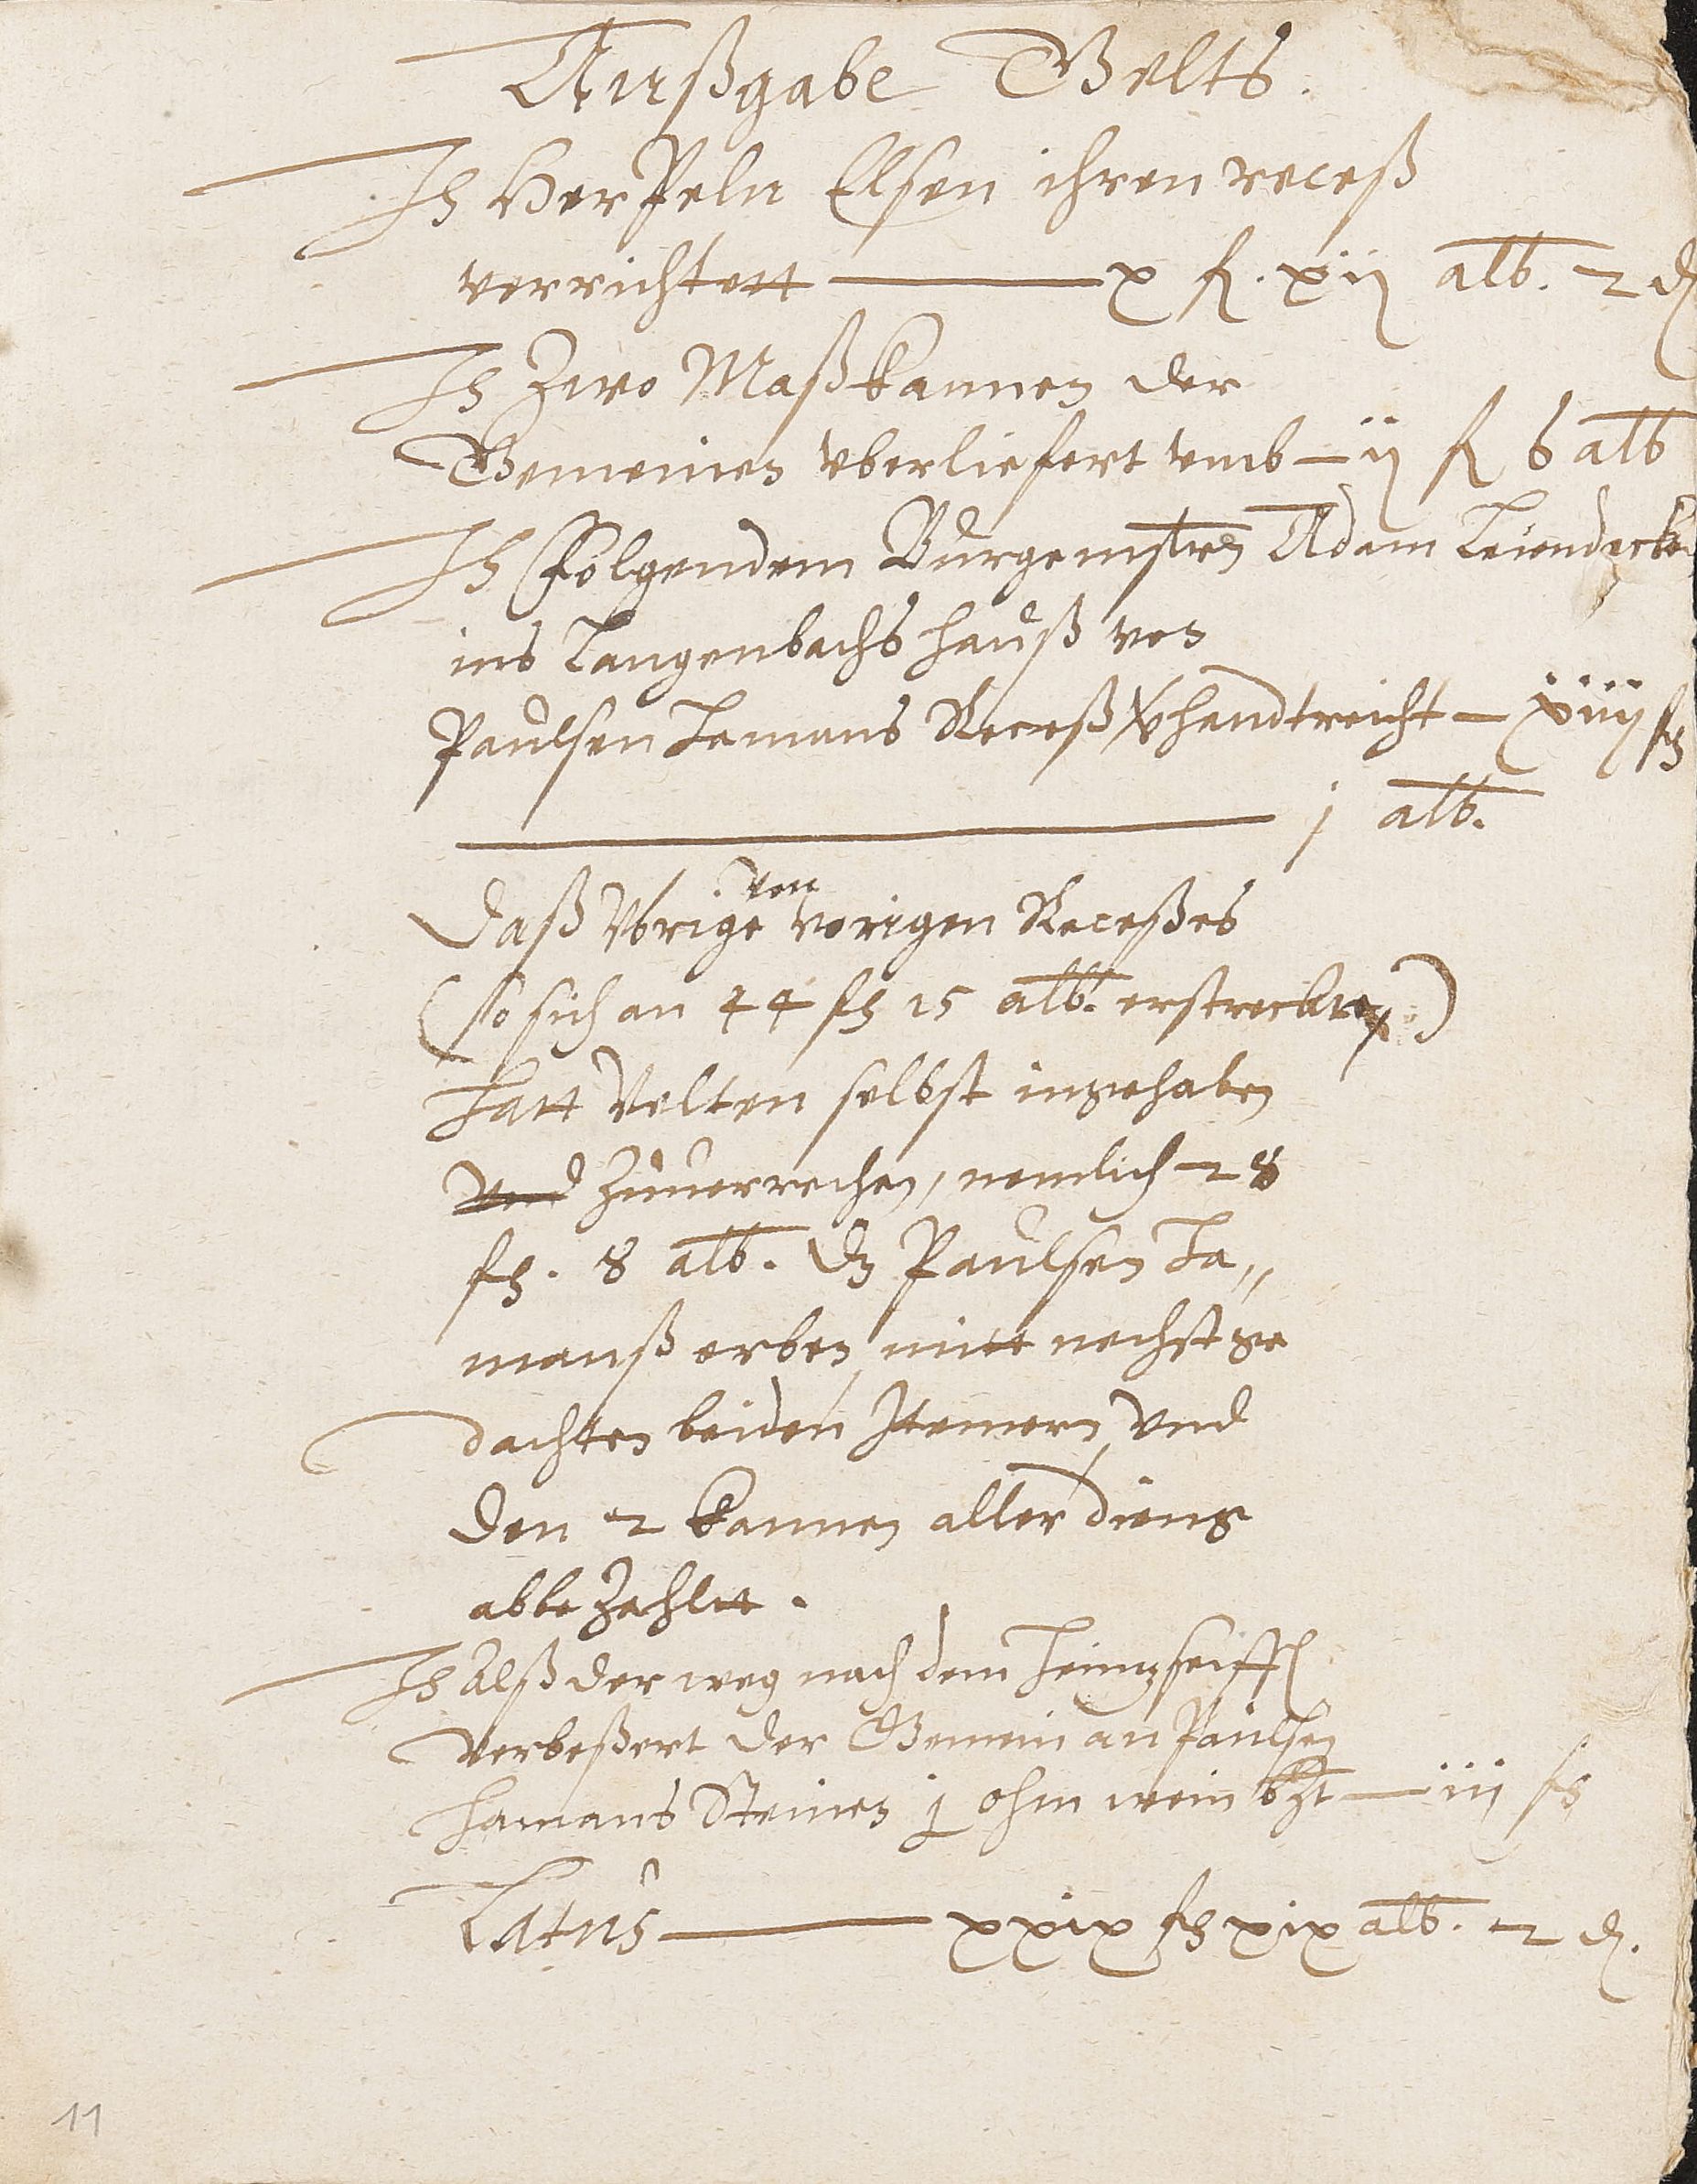 Außgabe Gelts.
It Herpeln Elsen ihren receß
verrichtett — x fl. xij alb. 2 d
It Zwo Maßkannen der
Gemeinen vberliefert vmb — ij fl 6 alb
It Folgendem Burgemstrn Adam Leiendecker
ins Langenbachs hauß von
Paulsen Hamans Receß behandtreicht — xiiij fl
— j alb.
Daß Vbrige von vorigen Receßes
(so sich an 44 fl 15 alb. erstrecktt)
Hatt Velten selbst ingehaben
vnd Zuuerrechen, nemlich 28
fl. 8 alb. Dz Paulsen Ha„
manß erben, mitt nechst ge
dachten beiden Itemern, vnd
den 2 kannen aller dieng
abbezahltt.
It Alß der weg nach dem
verbeßert der Gemein an Paulsen
Hamans Steinen j ohm wein bzt — iij fl
Latus — xxix fl xix alb. 2 d.
11